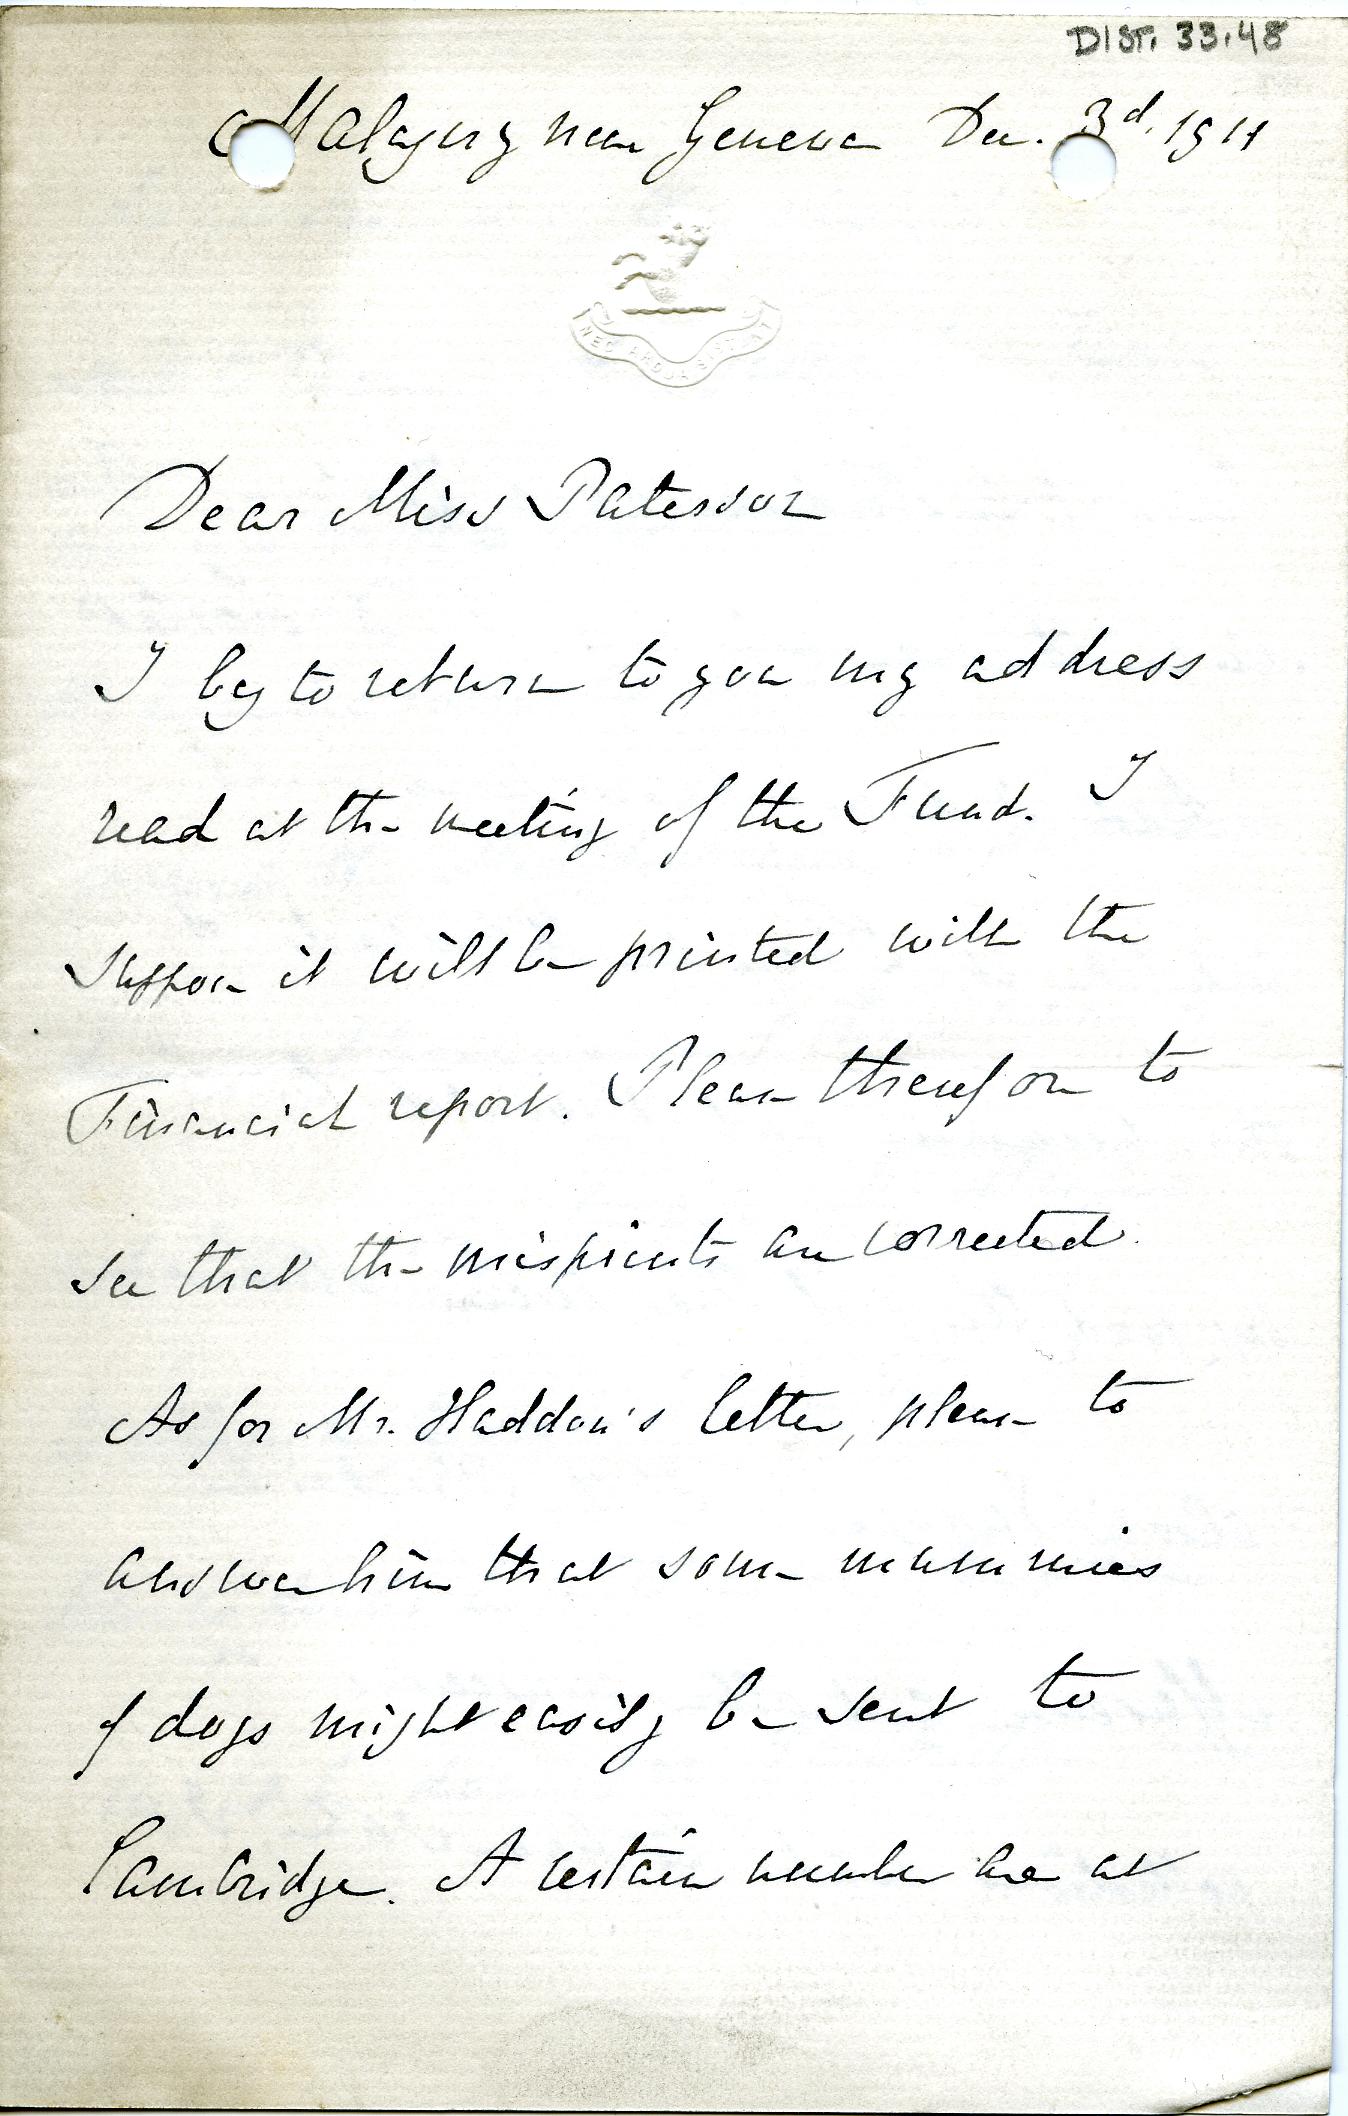 DIST. 33.48
Malagny near Geneva Dec. 3d. 1911
NEC ARDUA SISTUNT
Dear Miss Paterson
I beg to return to you my address
read at the meeting of the Fund. I
suppose it will be printed with the
Financial report. Please therefore to
see that the misprints are corrected.
As for Mr. Haddon's letter, please to
answer him that some mummies
of dogs might easily be sent to
Cambridge. A certain number are at